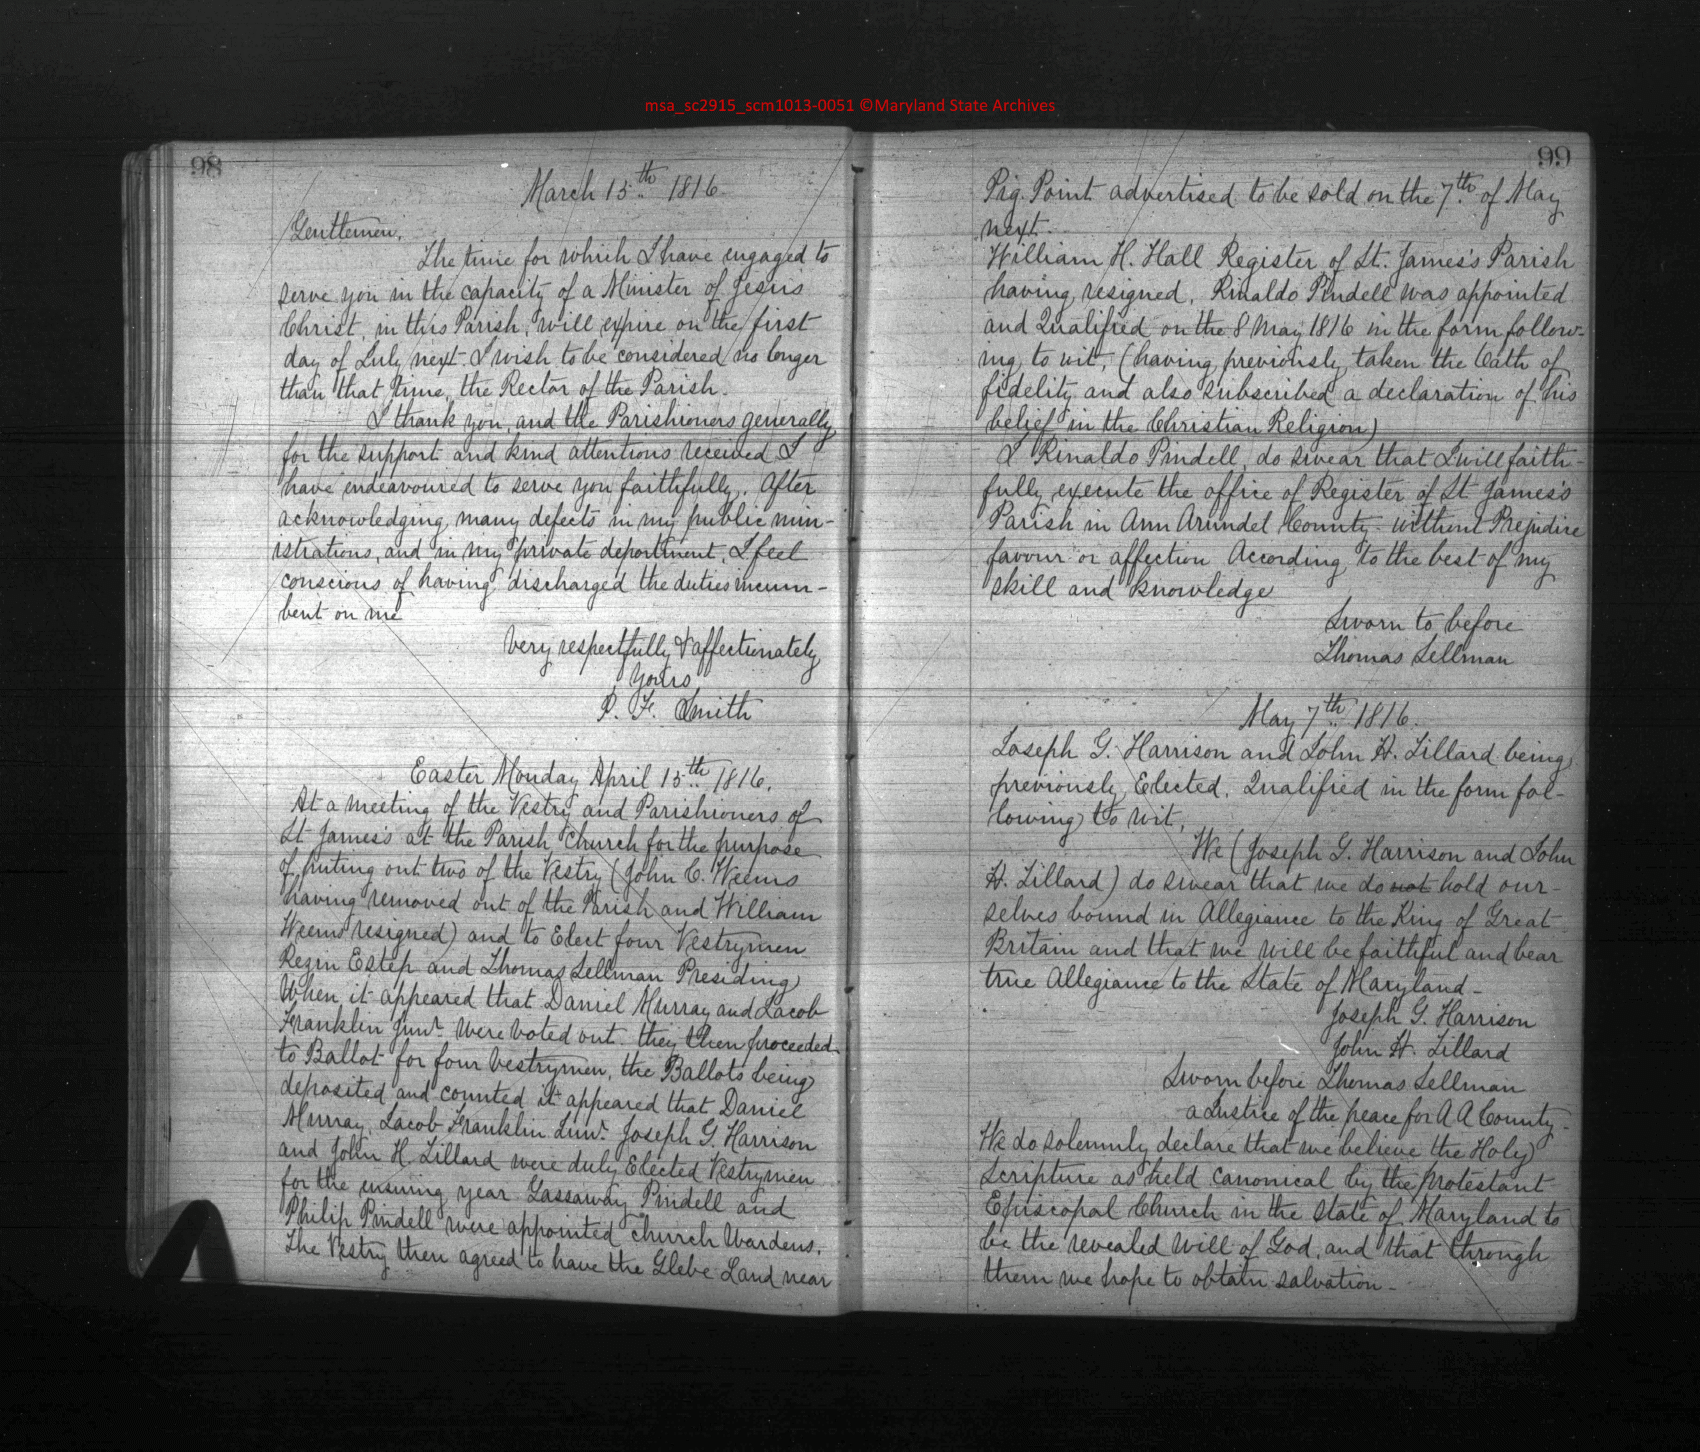 msa_sc2915_scm1013-0051 ©Maryland State Archives
98
March 15th 1816
Gentlemen,
The time for which I have engaged to
serve you in the capacity of a Minister of Jesus
Christ, in this Parish, will expire on the first
day of July next. I wish to be considered no longer
than that time, the Rector of the Parish.
I thank you, and the Parishioners generally
for the support and kind attentions received I
have endeavoured to serve you faithfully. After
acknowledging many defects in my public min-
istrations, and in my private deportment, I feel
conscious of having discharged the duties incum-
bent on me
Very respectfully & affectionately
Yours
P. F. Smith
Easter Monday April 15th 1816.
At a meeting of the Vestry and Parishioners of
St James's at the Parish Church for the purpose
of puting out two of the Vestry (John C. Weems
having removed out of the Parish and William
Weems resigned) and to Elect four Vestrymen
Rezin Estep and Thomas Sellman Presiding
When it appeared that Daniel Murray and Jacob
Franklin Junr were voted out. they then proceeded
to Ballot for four Vestrymen, the Ballots being
deposited and counted it appeared that Daniel
Murray, Jacob Franklin Junr. Joseph G. Harrison
and John H. Tillard were duly Elected Vestrymen
for the ensuing year Gassaway Pindell and
Philip Pindell were appointed church Wardens.
The Vestry then agreed to have the Glebe Land near
99
Pig Point advertised to be sold on the 7th of May
next.
William H. Hall Register of St. James's Parish
having resigned, Rinaldo Pindell was appointed
and Qualified on the 8 May 1816 in the form follow-
ing to wit, (having previously taken the Oath of
fidelity and also subscribed a declaration of his
belief in the Christian Religion)
I Rinaldo Pindell, do swear that I will faith-
fully execute the office of Register of St James's
Parish in Ann Arundel County without Prejudice
favour or affection According to the best of my
skill and knowledge
Sworn to before
Thomas Sellman
May 7th 1816.
Joseph G. Harrison and John H. Tillard being
previously Elected, Qualified in the form fol-
lowing to wit,
We (Joseph G. Harrison and John
H. Tillard) do swear that we do not hold our-
selves bound in Allegiance to the King of Great
Britain and that we will be faithful and bear
true Allegiance to the State of Maryland -
Joseph G. Harrison
John H. Tillard
Sworn before Thomas Sellman
a Justice of the peace for A A County -
We do solemnly declare that we believe the Holy
Scripture as held canonical by the Protestant
Episcopal Church in the State of Maryland to
be the revealed Will of God, and that through
them we hope to obtain salvation -